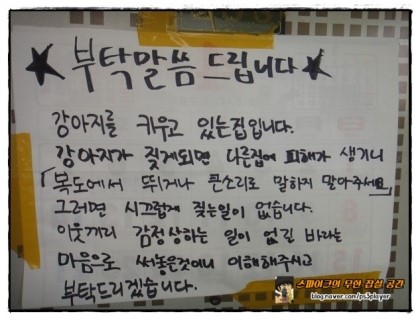 ★ 부탁말씀드립니다 ★
강아지를 키우고 있는집입니다.
강아지가 짖게되면 다른집에 피해가 생기니
「복도에서 뛰거나 큰소리로 말하지 말아주세요」
그러면 시끄럽게 짖는일이 없습니다.
이웃끼리 감정상하는 일이 없길 바라는
마음으로 써놓은것이니 이해해주시고
부탁드리겠습니다.
스파이크의 무한 잡설 공간
blog.naver.com/ps3player